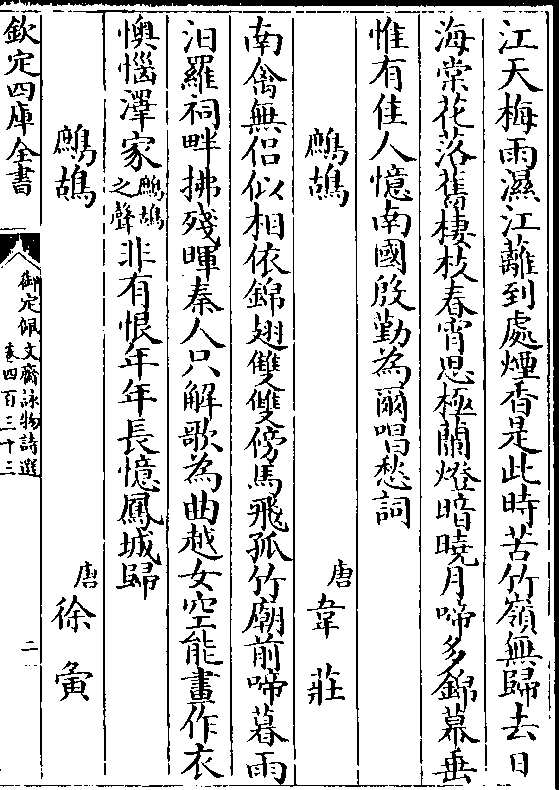 江天梅雨濕江蘺到處煙香是此時苦竹嶺無歸去日
海棠花落舊棲枝春宵思極蘭燈暗曉月啼多錦幕垂
惟有佳人憶南國殷勤為爾唱愁詞
鷓鴣　唐　韋莊
南禽無侣似相依錦翅雙雙傍馬飛孤竹廟前啼暮雨
汨羅祠畔拂殘暉秦人只解歌為曲越女空能畫作衣
懊惱澤家鷓鴣之聲非有恨年年長憶鳳城歸
鷓鴣　唐　徐夤
欽定四庫全書　御定佩文齋詠物詩選卷四百三十三　二